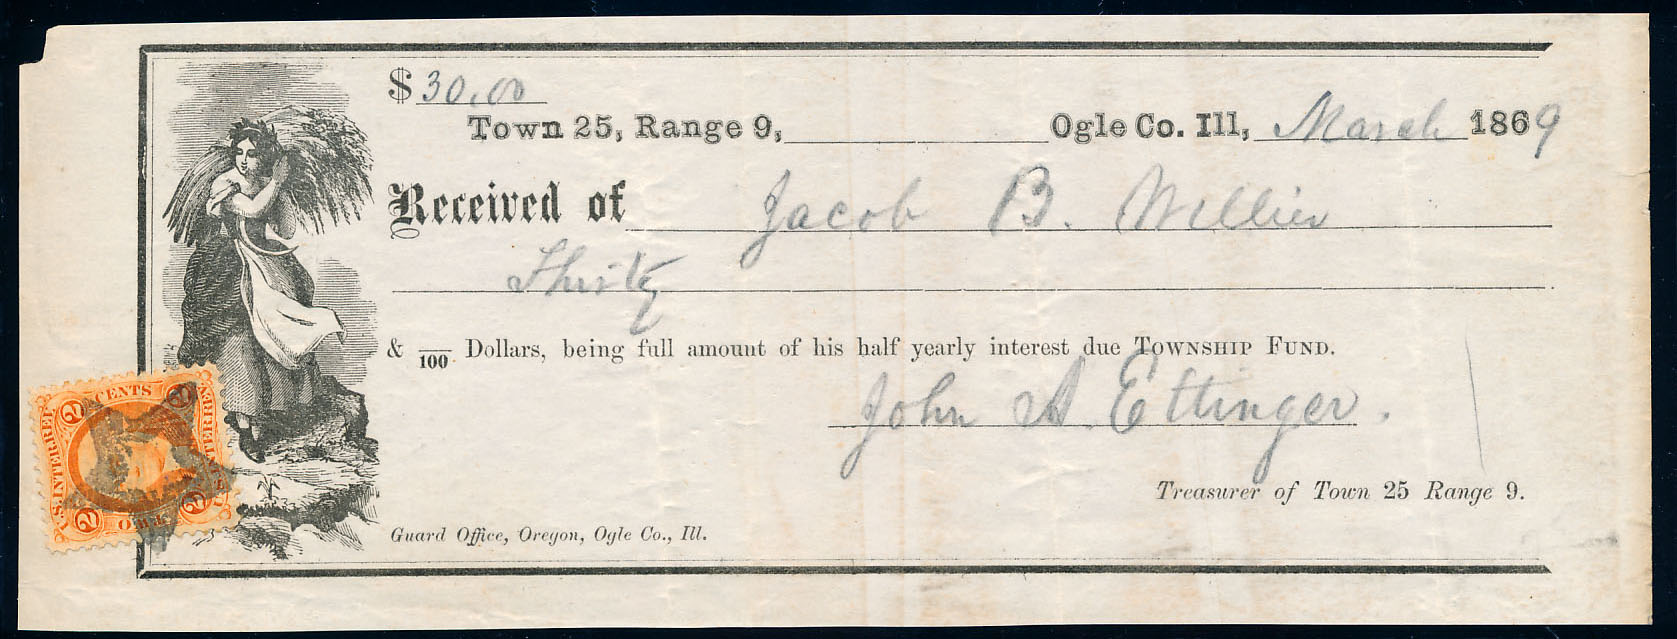 $30.00
Town 25, Range 9, Ogle Co. Ill, March 1869
Received of Jacob B. Willier
Thirty
& /100 Dollars, being full amount of his half yearly interest due Township Fund.
John A. Ettinger.
Treasurer of Town 25 Range 9.
Guard Office, Oregon, Ogle Co., Ill.
U.S. INTER. REV.
2 CENTS 2
2 2